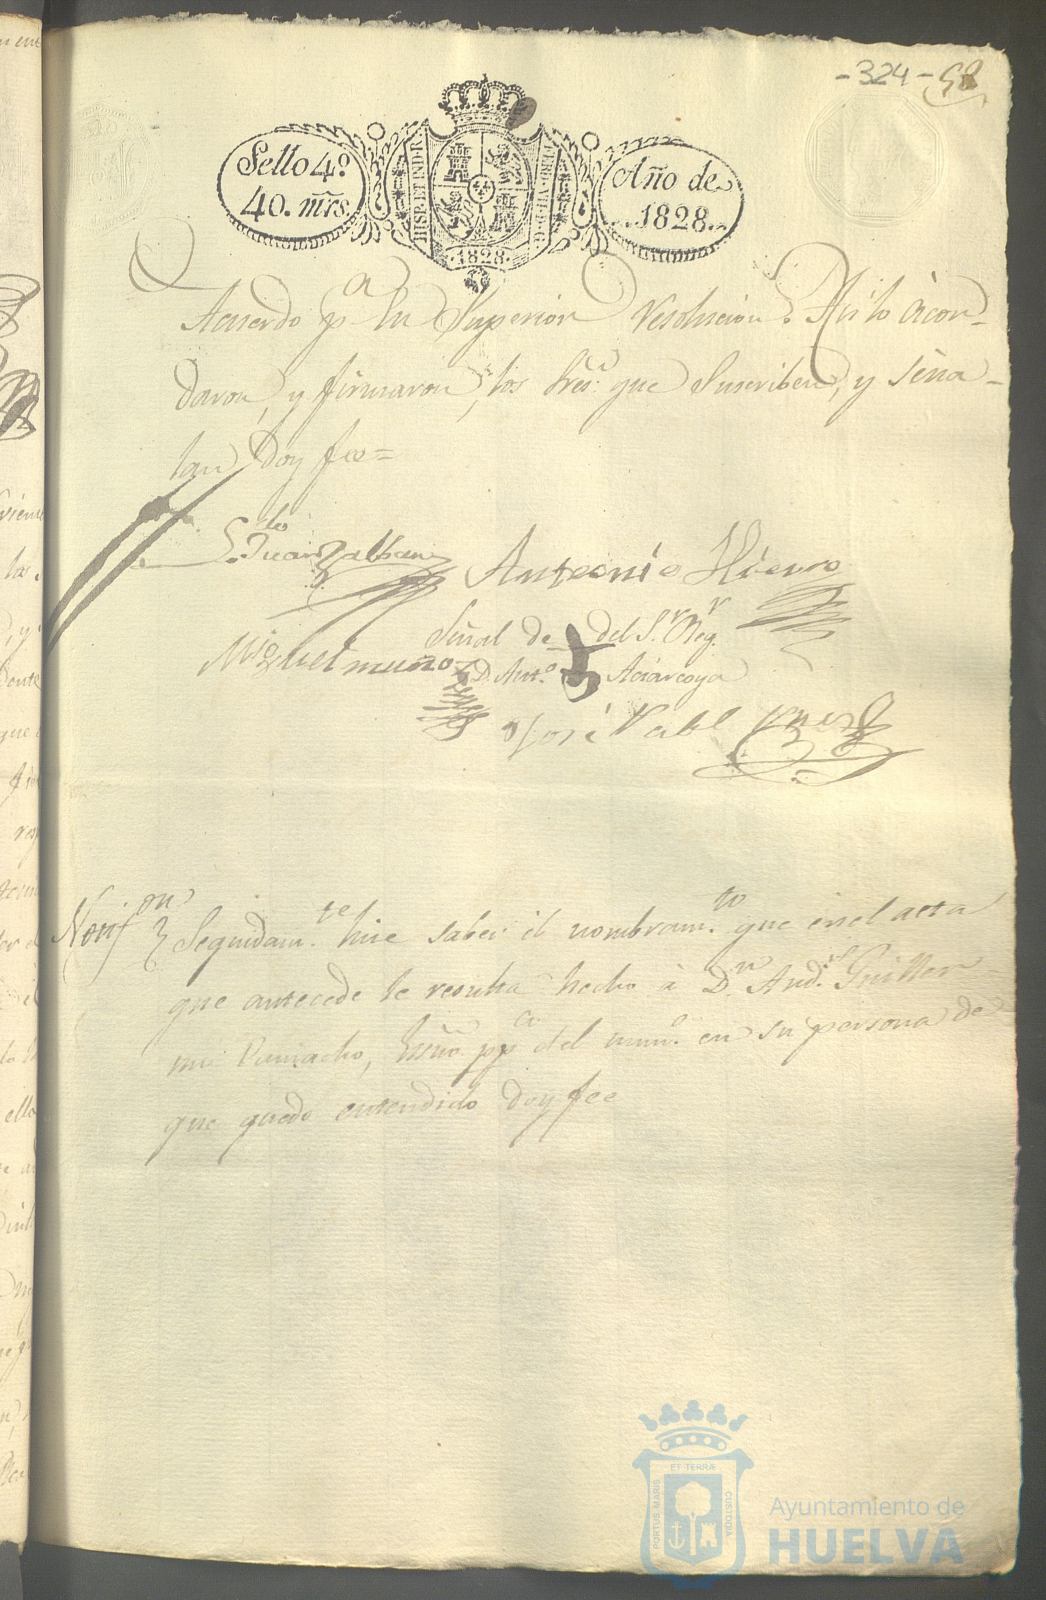 -324- 58
Sello 4º. 40. mrs.
HISP. ET IND. R.
FERD. VII. D. G.
1828.
Año de 1828.
Acuerdo pª la Superior resolucion. Asi lo acor-
daron, y firmaron, los Sres. que Suscriben, y seña-
lan Doy fee=
Ldo Juan
Antonio Hierro
Miguel muñoz
Señal de del Sr. Regr.
D. Antº. Aciarcoya
José
Notifon
Seguidamte. hice saber el nombramto. que en el acta
que antecede le resulta hecho à Dn And.s Guiller-
mo Camacho, Essno ppco del numº. en su persona de
que quedo entendido doy fee
PORTUS MARIS
ET TERRÆ
CUSTODIA
Ayuntamiento de
HUELVA